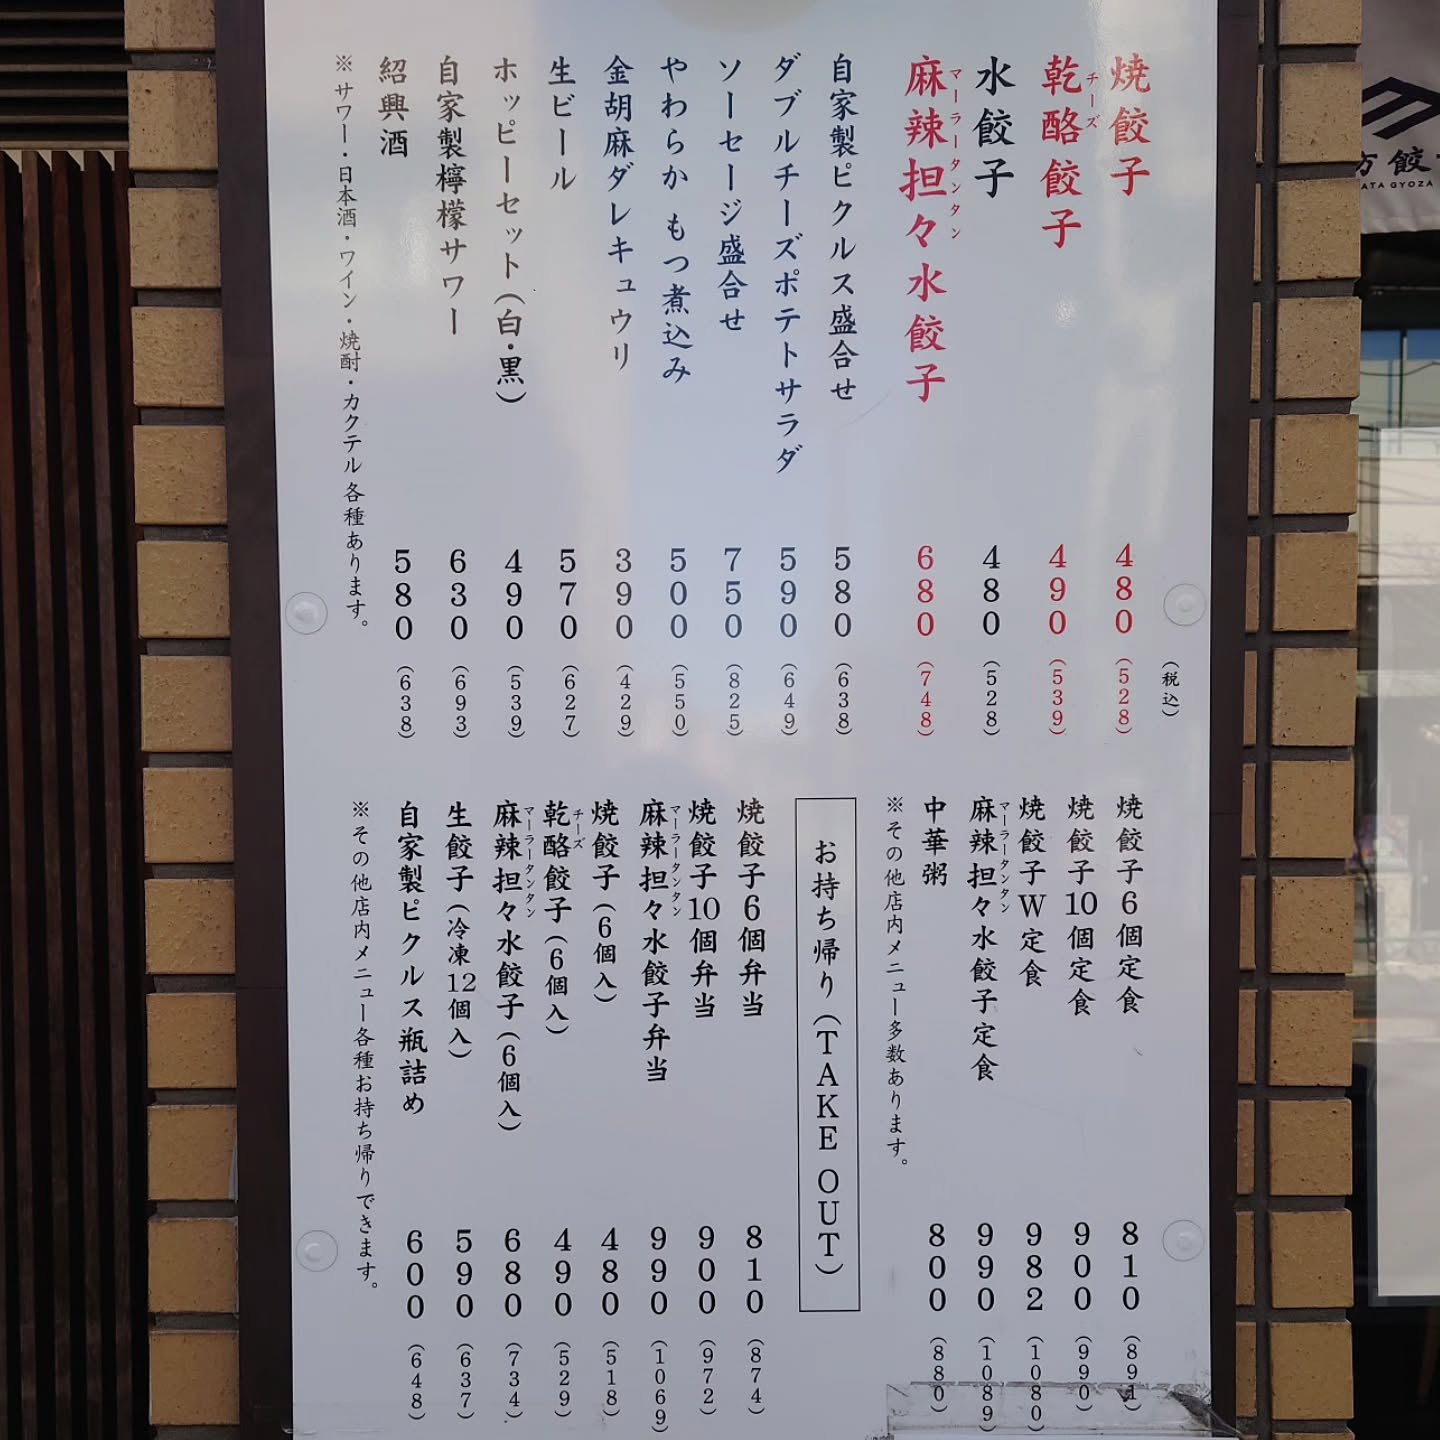 焼餃子 480 (528)
乾酪餃子 490 (539)
チーズ
水餃子 480 (528)
麻辣担々水餃子 680 (748)
マーラータンタン
自家製ピクルス盛合せ 580 (638)
ダブルチーズポテトサラダ 590 (649)
ソーセージ盛合せ 750 (825)
やわらか もつ煮込み 500 (550)
金胡麻ダレキュウリ 390 (429)
生ビール 570 (627)
ホッピーセット(白・黒) 490 (539)
自家製檸檬サワー 630 (693)
紹興酒 580 (638)
※サワー・日本酒・ワイン・焼酎・カクテル各種あります。
(税込)
焼餃子6個定食 810 (891)
焼餃子10個定食 900 (990)
焼餃子W定食 982 (1080)
麻辣担々水餃子定食 990 (1089)
マーラータンタン
中華粥 800 (880)
※その他店内メニュー多数あります。
お持ち帰り(TAKE OUT)
焼餃子6個弁当 810 (874)
焼餃子10個弁当 900 (972)
麻辣担々水餃子弁当 990 (1069)
マーラータンタン
焼餃子(6個入) 480 (518)
乾酪餃子(6個入) 490 (529)
チーズ
麻辣担々水餃子(6個入) 680 (734)
マーラータンタン
生餃子(冷凍12個入) 590 (637)
自家製ピクルス瓶詰め 600 (648)
※その他店内メニュー各種お持ち帰りできます。